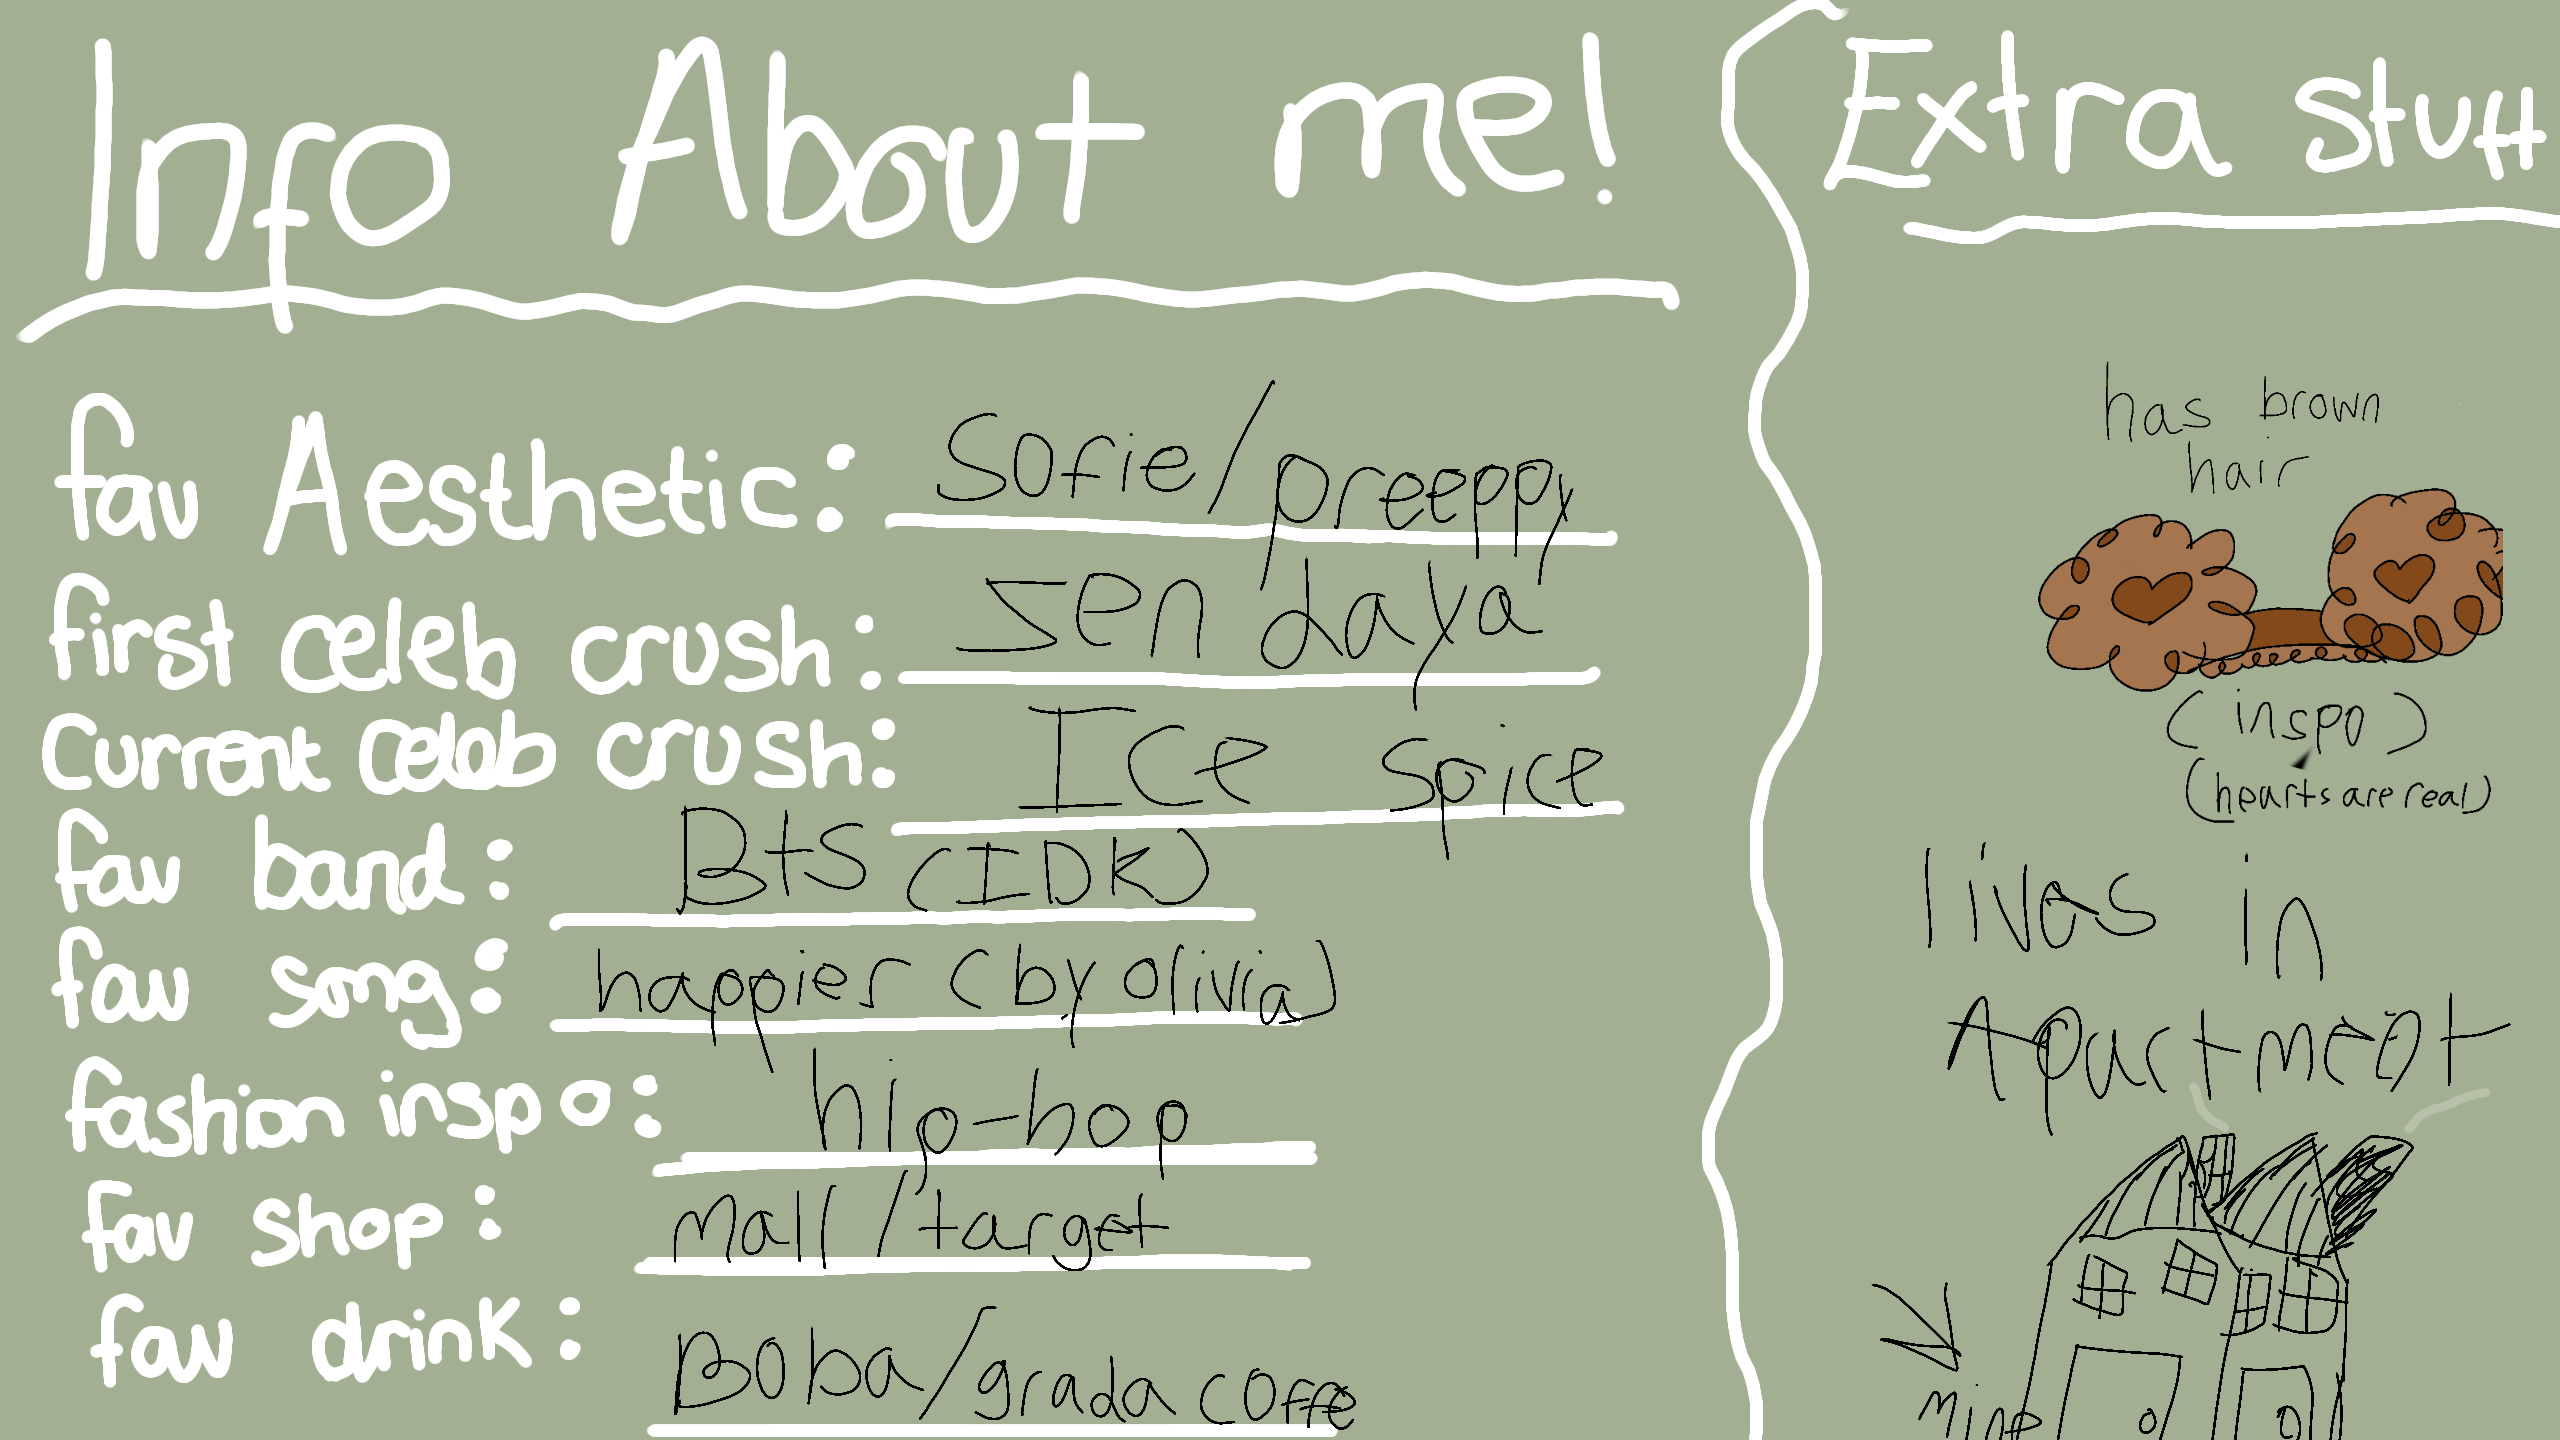 Info About me!
fav Aesthetic: Sofie/preeppy
first celeb crush: Sendaya
Current celeb crush: Ice spice
fav band: Bts (IDK)
fav song: happier (by olivia)
fashion inspo: hip-hop
fav shop: mall/target
fav drink: Boba/grada coffe
Extra stuff
has brown
hair
(inspo)
(hearts are real)
lives in
Apartment
mine